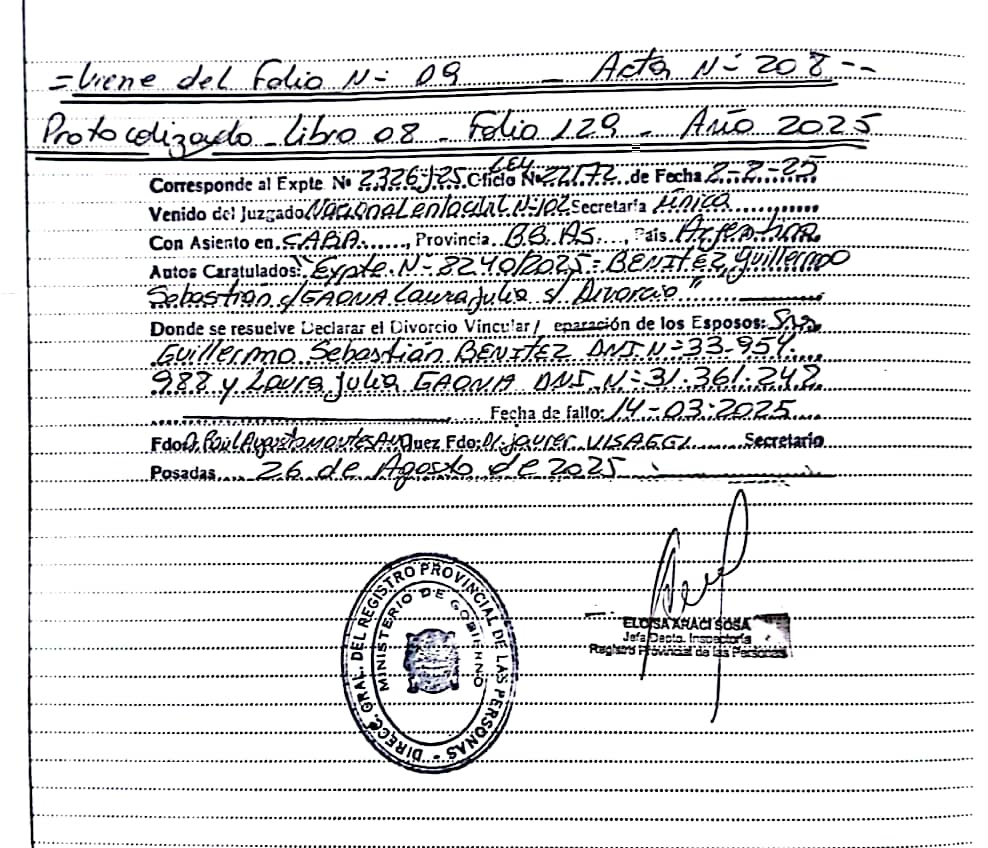 = Viene del Folio N= 09 _ Acta N= 208 --
Protocolizado - Libro 08 - Folio 129 - Año 2025
Corresponde al Expte. Nº 2326/25. Oficio LEY Nº 22172 de Fecha 2-7-25
Venido del Juzgado Nacional en lo Civil N=102 Secretaría única
Con Asiento en CABA, Provincia BS. AS., País Argentina
Autos Caratulados: "Expte. N= 8240/2025 = BENITEZ, Guillermo
Sebastián c/GAONA Laura Julia s/ Divorcio"
Donde se resuelve Declarar el Divorcio Vincular/ eparación de los Esposos: Sres
Guillermo Sebastián BENITEZ DNI N=33.954.
988 y Laura Julia GAONA DNI N=31.361.242
Fecha de fallo: 14-03-2025
Fdo Dr. Raúl Augusto Montes Juez Fdo: Dr. Javier VISAGGI Secretario
Posadas 26 de Agosto de 2025
DIRECC. GRAL. DEL REGISTRO PROVINCIAL DE LAS PERSONAS -
MINISTERIO DE GOBIERNO
ELOISA ARACI SOSA
Jefa Dpto. Inspectoría
Registro Provincial de las Personas